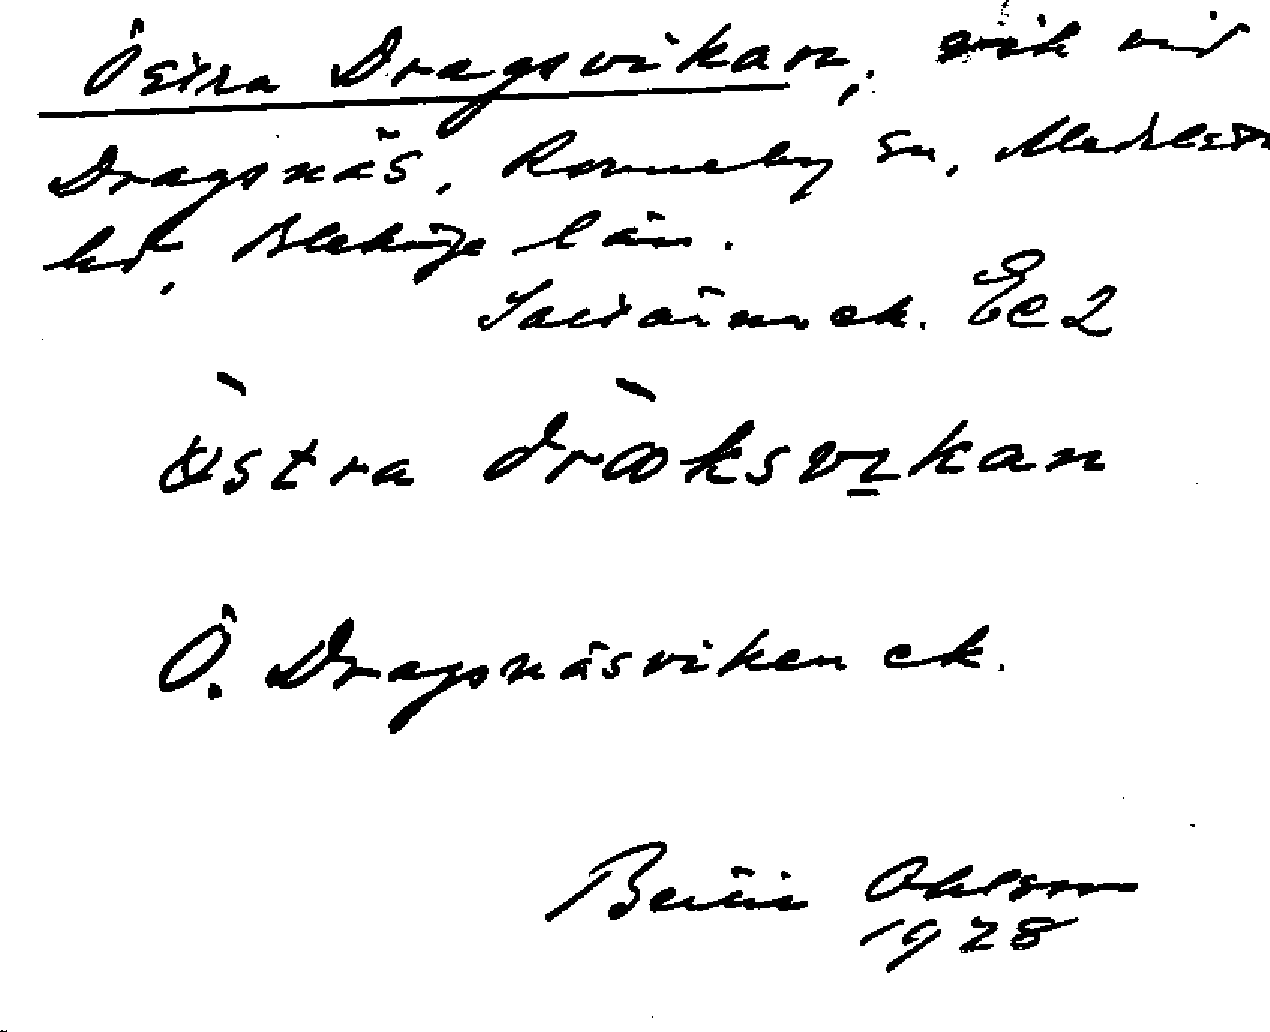 Östra Dragsvikan, vik vid
Dragsnäs, Ronneby sn, Medelsta
hd, Blekinge län.
ek. Ec2
östra draksvikan
Ö. Dragsnäsviken ek.
Bertil Ohlsson
1928